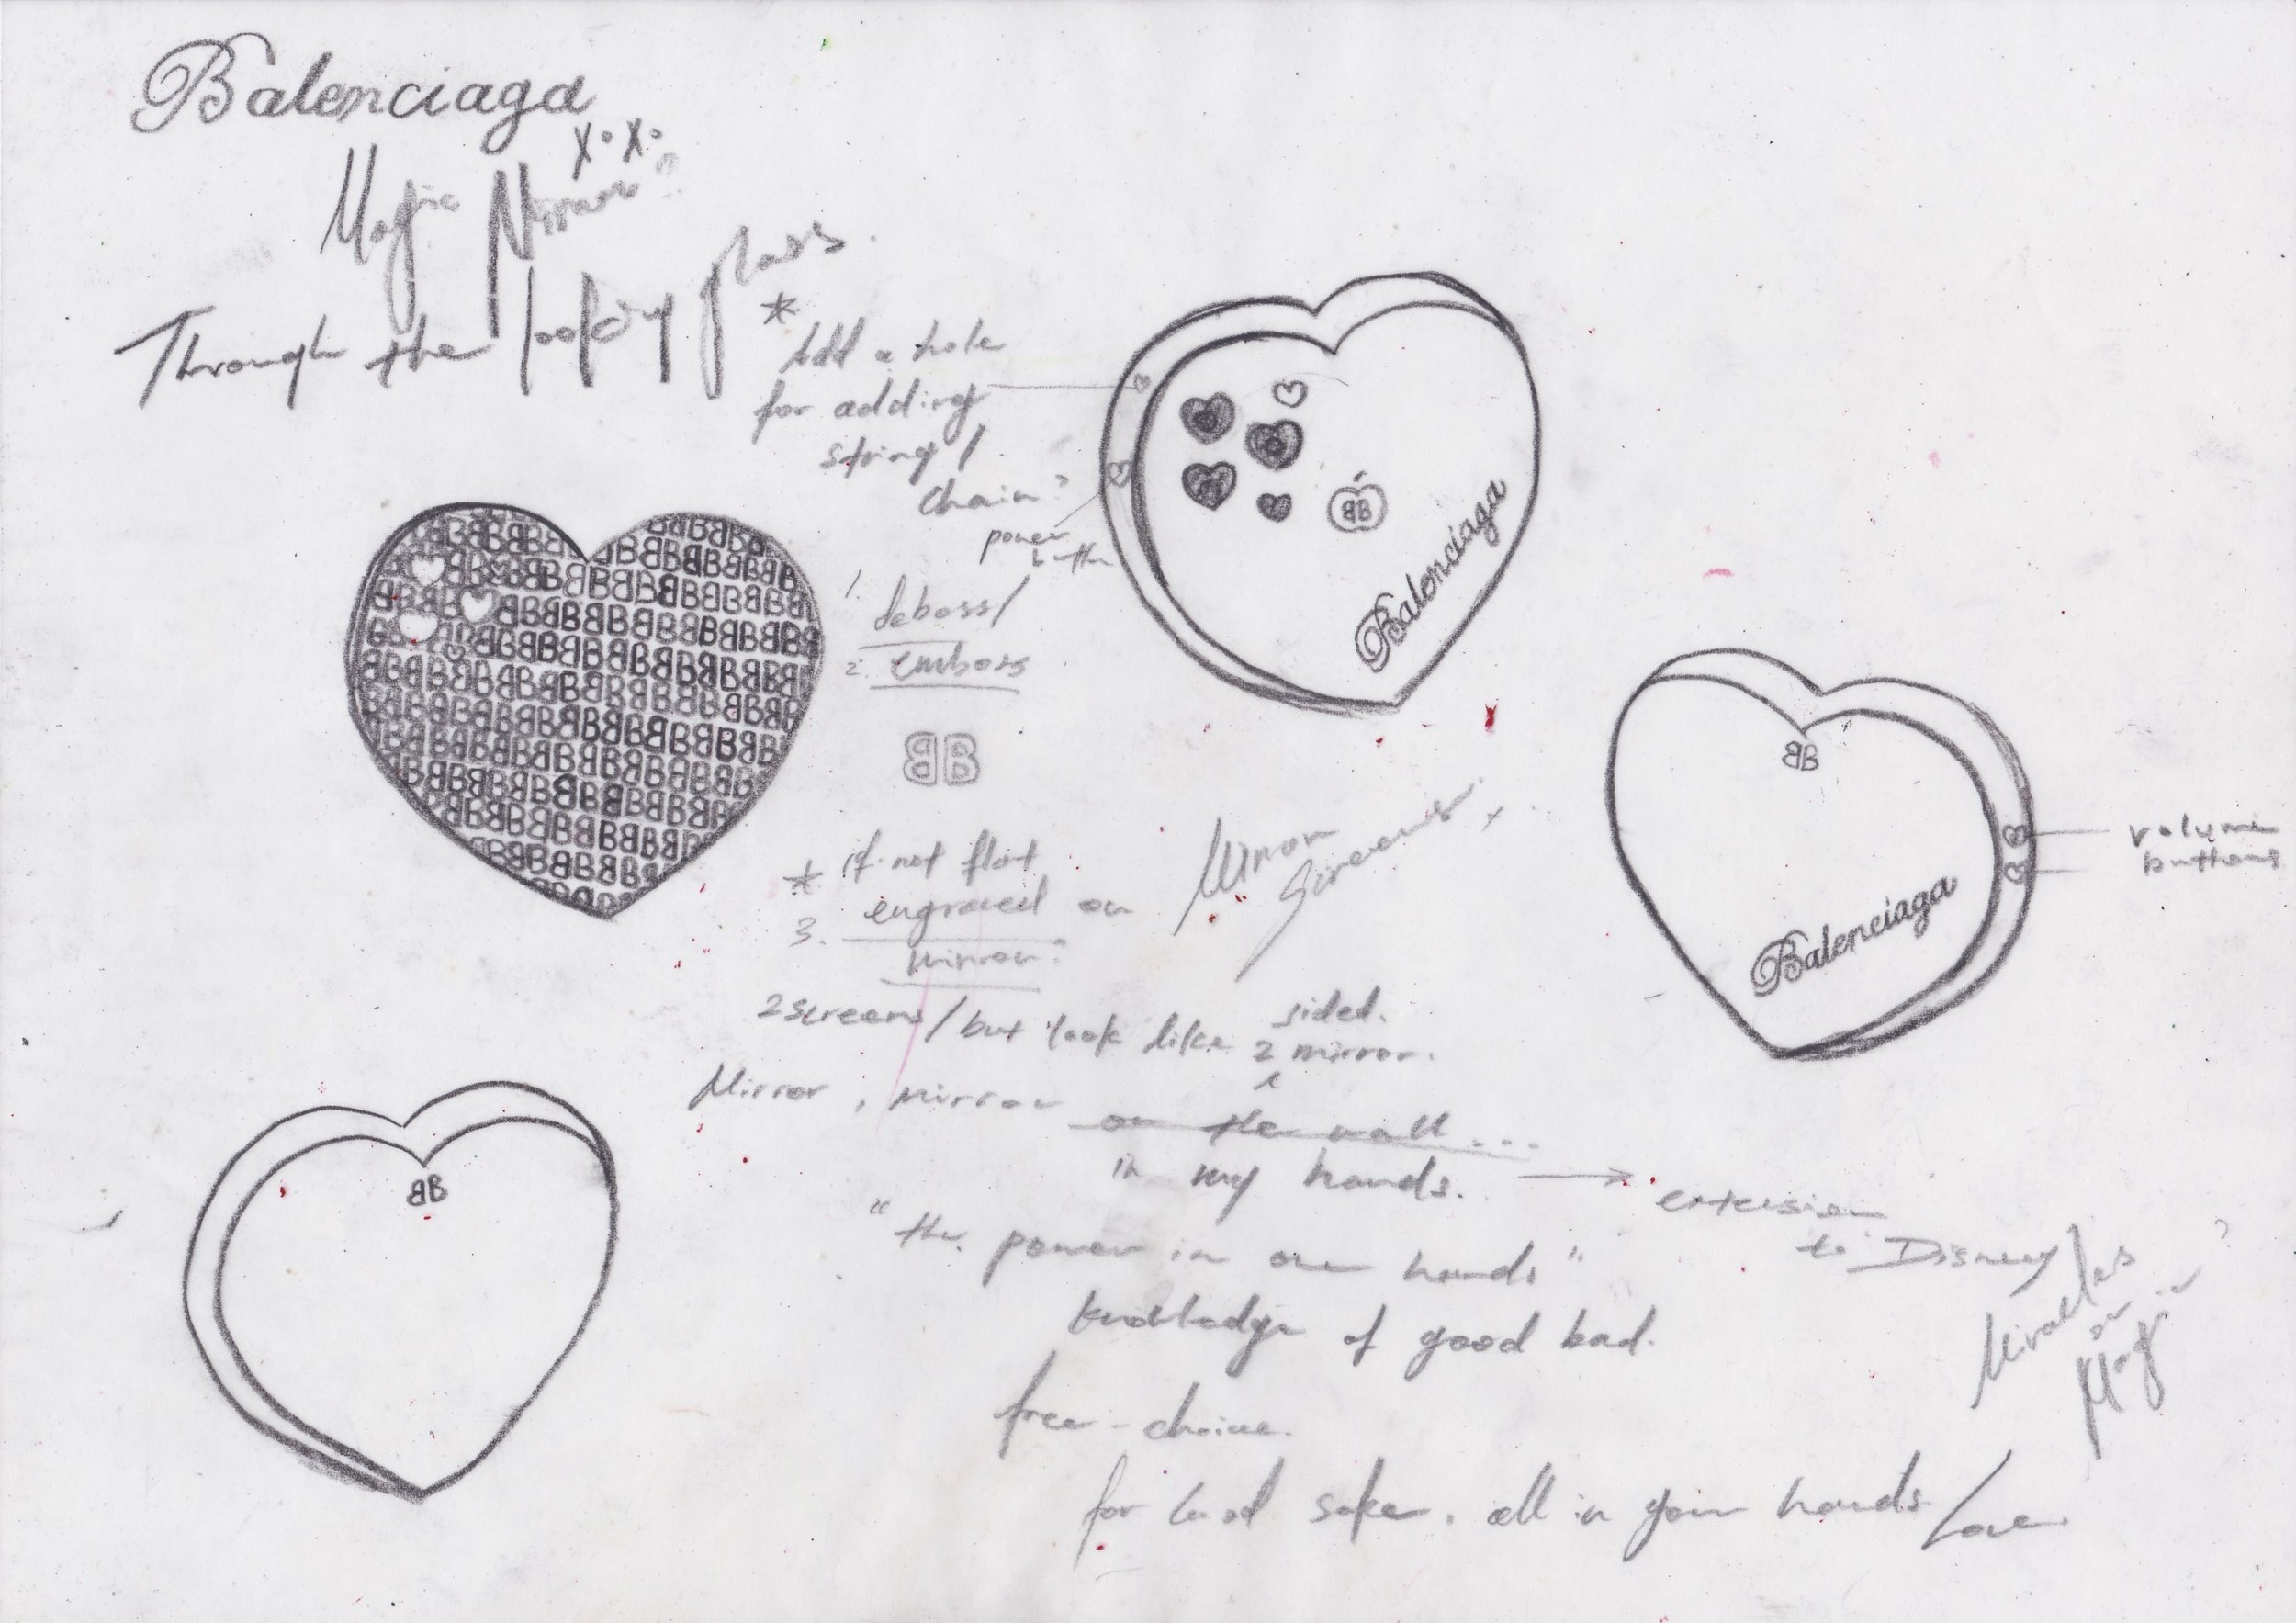 Balenciaga
x° x°
Magic Mirror
Through the looking glass.
* Add a hole
for adding
string /
chain?
power
button
1. deboss /
2. emboss
BB
* if not flat
3. engraved on
mirror?
Mirror
Screens
2 screens / but look like 2 sided mirror.
Mirror, mirror
on the wall ...
in my hands. →
extension
to Disney
"the power in our hands"
knowledge of good bad.
free-choice.
for sake, all in your hands
Love
Balenciaga
BB
BB
Balenciaga
volume
buttons
BB